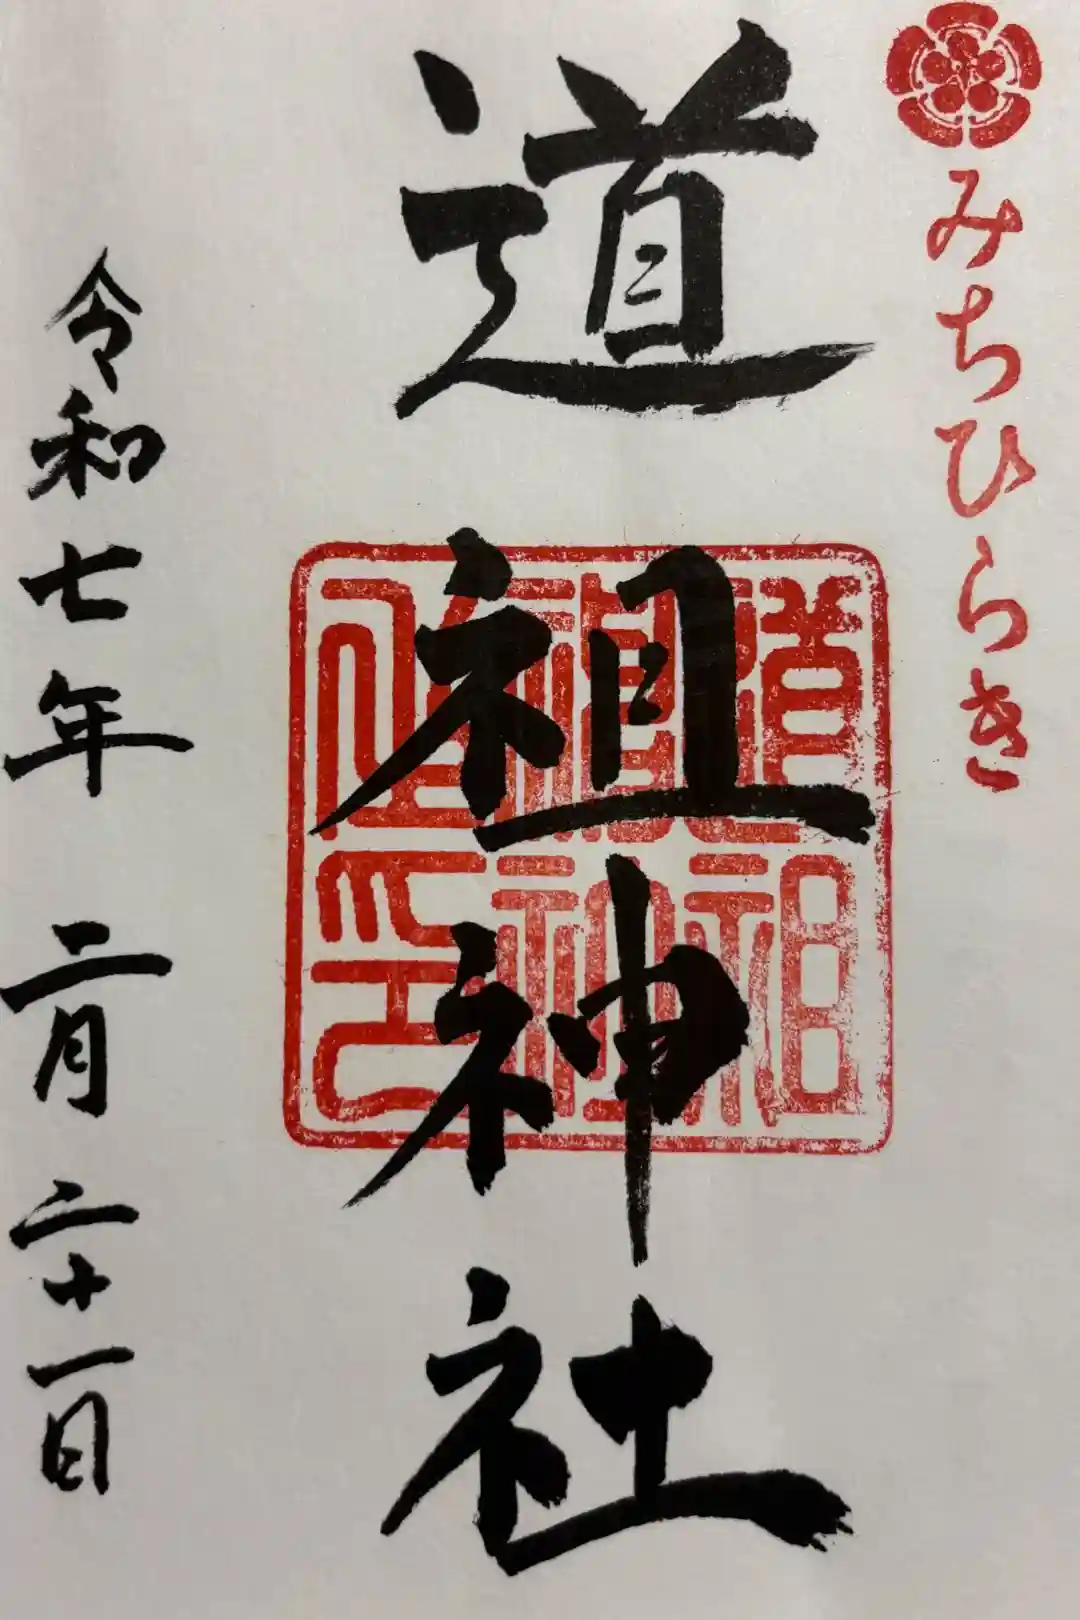 みちひらき
道祖神社
道祖
神社
之印
令和七年 二月 二十一日